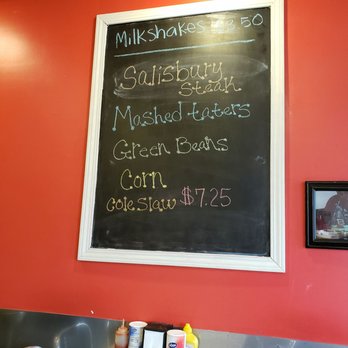 Milkshakes $3.50
Salisbury
Steak
Mashed taters
Green Beans
Corn
Cole Slaw $7.25